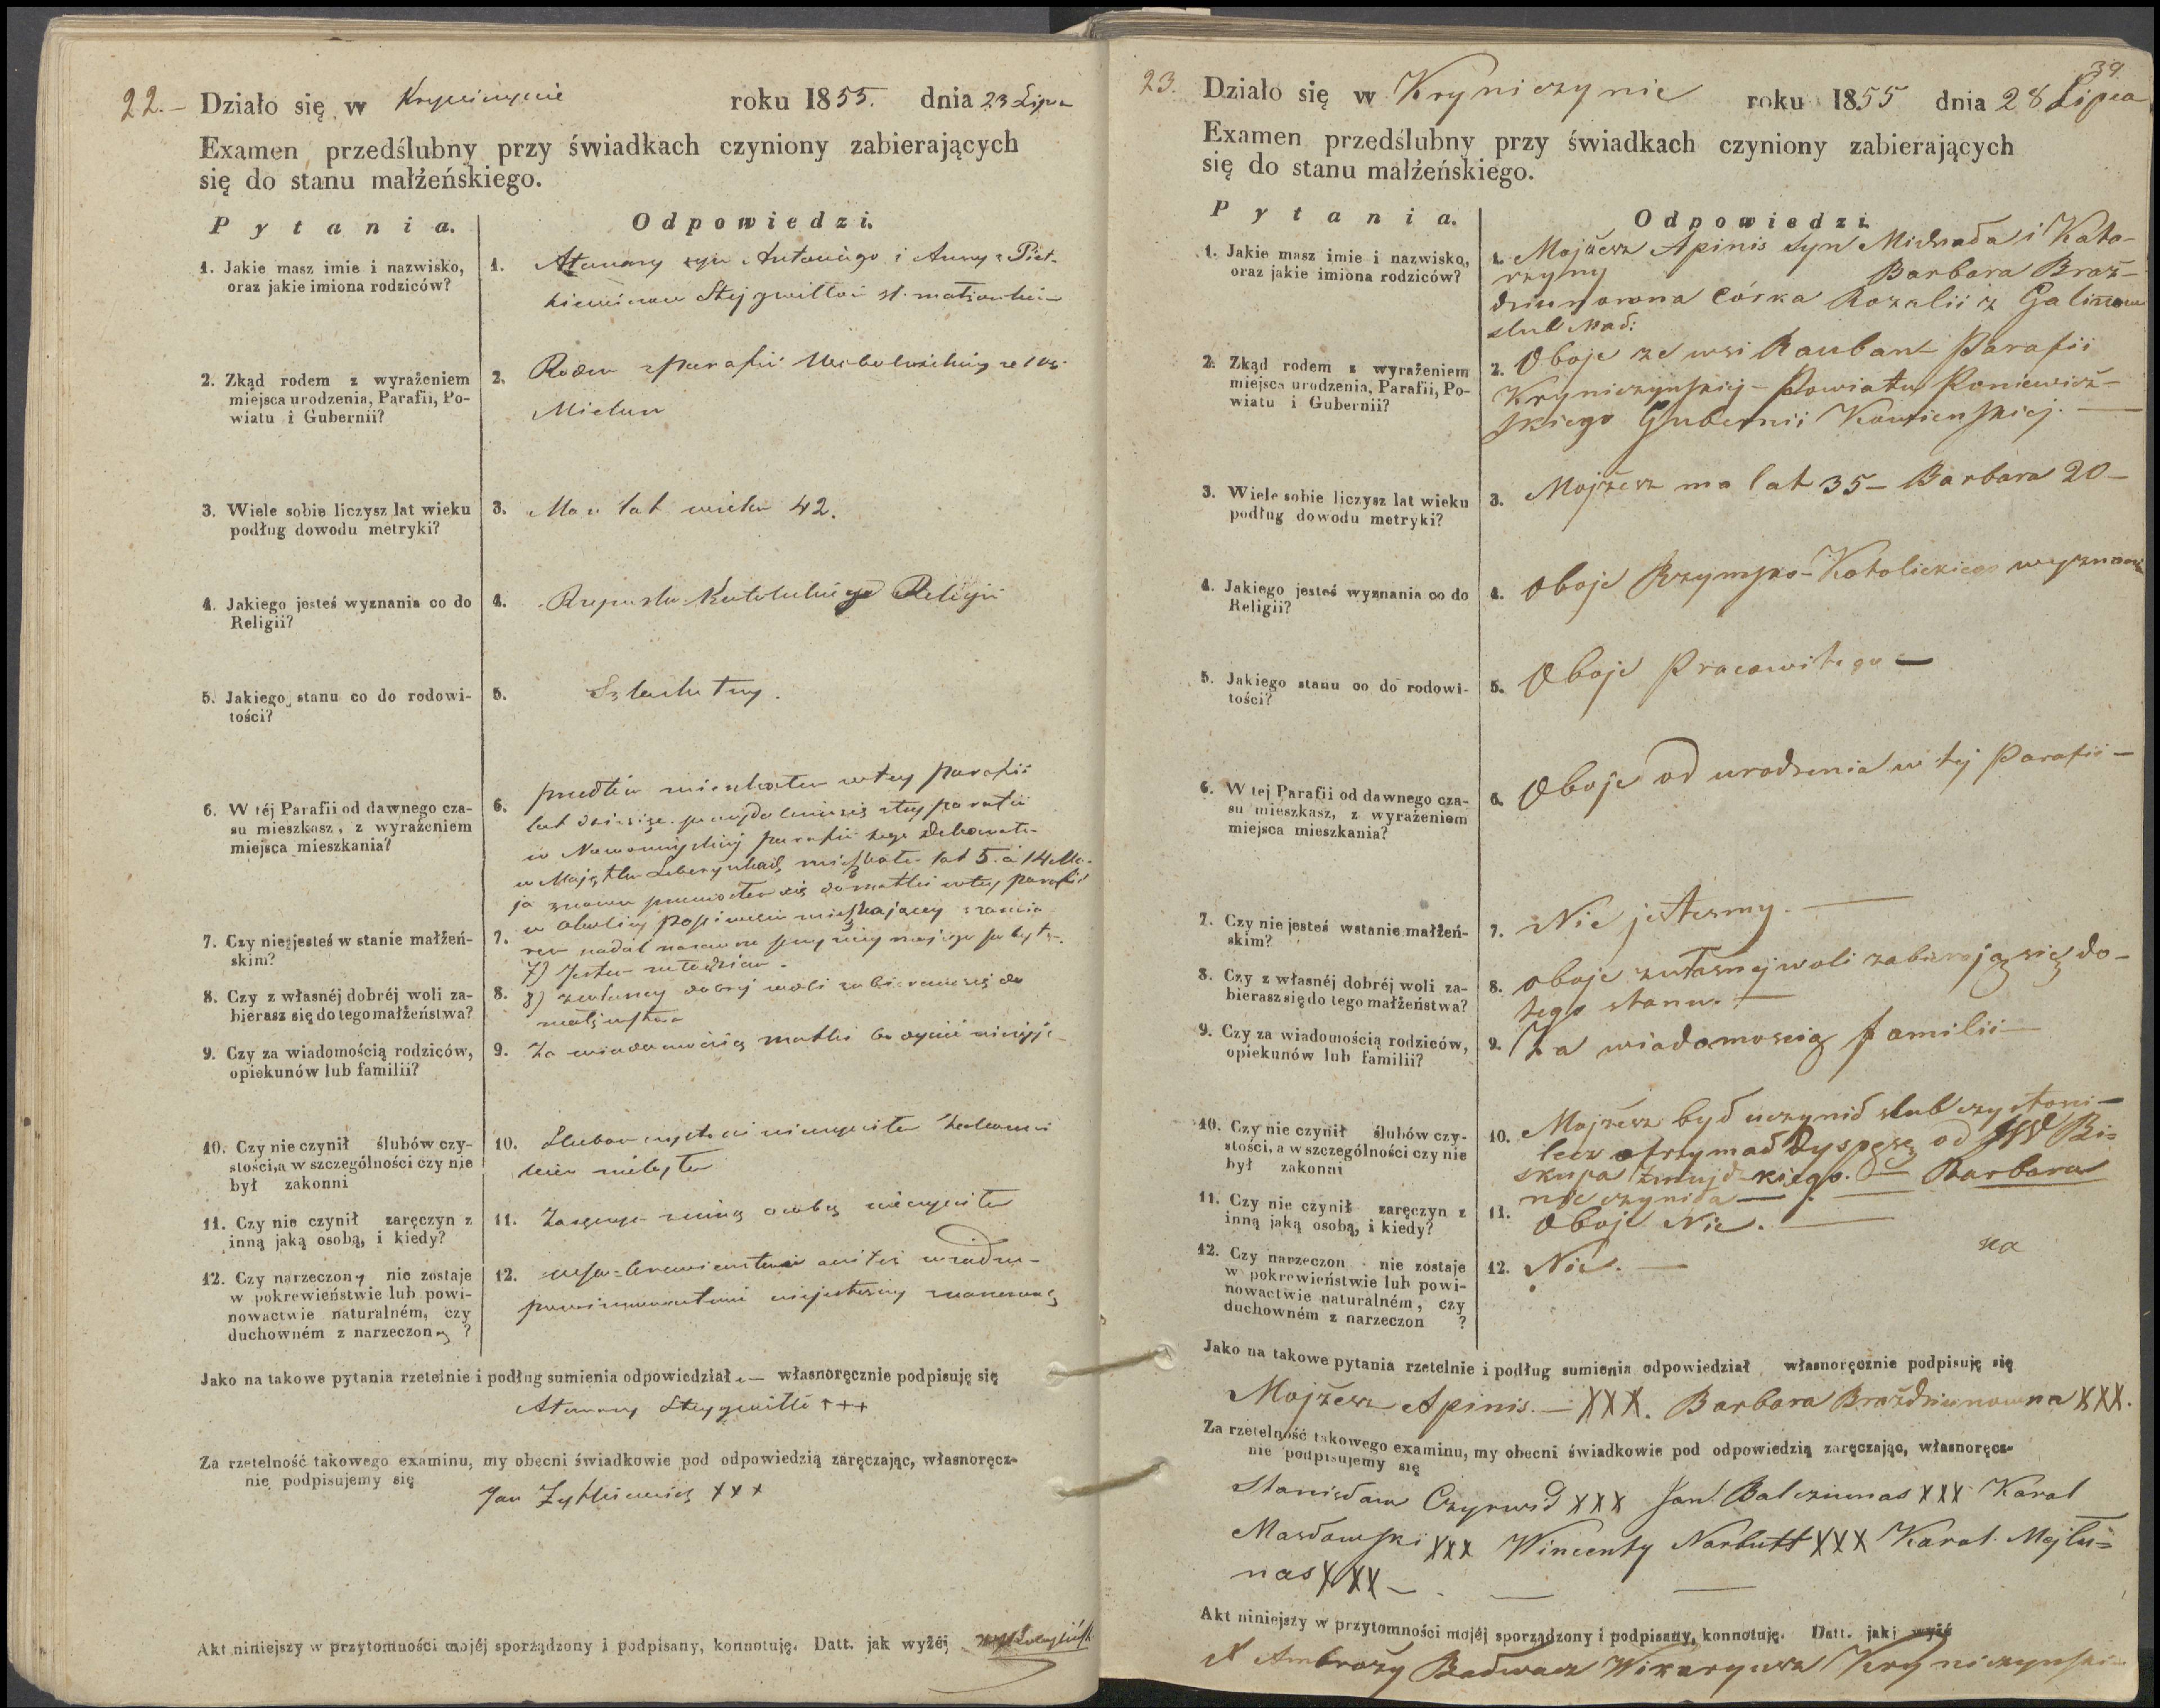 22.– Działo się w Kryniczynie roku 1855. dnia 23 Lipca
Examen przedślubny przy świadkach czyniony zabierających
się do stanu małżeńskiego.
Pytania. Odpowiedzi.
1. Jakie masz imie i nazwisko,
oraz jakie imiona rodziców?
1. Atanazy syn Antoniego i Anny z Piet-
2. Zkąd rodem z wyrażeniem
miejsca urodzenia, Parafii, Po-
wiatu i Gubernii?
2. Rodem z parafii
3. Wiele sobie liczysz lat wieku
podług dowodu metryki?
3. Mam lat wieku 42.
4. Jakiego jesteś wyznania co do
Religii?
4. Rzymsko-Katolickiego Religii
5. Jakiego stanu co do rodowi-
tości?
5. Szlachetny.
6. W téj Parafii od dawnego cza-
su mieszkasz, z wyrażeniem
miejsca mieszkania?
6. przedtem mieszkałem w tej parafii
parafii tego Dekanatu
mieszkałem lat 5. a 14 Ma-
ja znowu do matki w tej parafii
w okolicy mieszkającej
7. Czy nie jesteś w stanie małżeń-
skim?
7. 7) Jestem młodzian.
8. Czy z własnéj dobréj woli za-
bierasz się do tego małżeństwa?
8. 8) z własnej dobrej woli zabieram się do
małżeństwa
9. Czy za wiadomością rodziców,
opiekunów lub familii?
9. Za wiadomością matki bo ojciec nieżyje
10. Czy nie czynił ślubów czy-
stości, a w szczególności czy nie
był zakonni
10. Ślubów czystości nieczyniłem Zakonni
kiem niebyłem
11. Czy nie czynił zaręczyn z
inną jaką osobą, i kiedy?
11. Zaręczyn z inną osobą nieczyniłem
12. Czy narzeczony nie zostaje
w pokrewieństwie lub powi-
nowactwie naturalném, czy
duchowném z narzeczoną ?
12. ani też w żadnem
powinowactwie niejesteśmy z narzeczoną
Jako na takowe pytania rzetelnie i podług sumienia odpowiedział – własnoręcznie podpisuję się
Atanazy Stejgwiłło +++
Za rzetelność takowego examinu, my obecni świadkowie pod odpowiedzią zaręczając, własnoręcz-
nie podpisujemy się
Jan Żytkiewicz XXX
Akt niniejszy w przytomności mojéj sporządzony i podpisany, konnotuję. Datt. jak wyżéj
39
23. Działo się w Kryniczynie roku 1855 dnia 28 Lipca
Examen przedślubny przy świadkach czyniony zabierających
się do stanu małżeńskiego.
Pytania. Odpowiedzi.
1. Jakie masz imie i nazwisko,
oraz jakie imiona rodziców?
1. Mojżesz Apinis syn Michała i Kata-
rzyny Barbara Braź-
dziunowna Córka Rozalii z Galinow
slub Mał:
2. Zkąd rodem z wyrażeniem
miejsca urodzenia, Parafii, Po-
wiatu i Gubernii?
2. Oboje ze wsi Rauban Parafii
Kryniczynskiej – Powiatu Poniewież-
skiego Gubernii Kowienskiej. —
3. Wiele sobie liczysz lat wieku
podług dowodu metryki?
3. Mojżesz ma lat 35 – Barbara 20 –
4. Jakiego jesteś wyznania co do
Religii?
4. Oboje Rzymsko-Katolickiego wyznania
5. Jakiego stanu co do rodowi-
tości?
5. Oboje Pracowitego —
6. W tej Parafii od dawnego cza-
su mieszkasz, z wyrażeniem
miejsca mieszkania?
6. Oboje od urodzenia w tej Parafii –
7. Czy nie jesteś wstanie małżeń-
skim?
7. Nie jestesmy. —
8. Czy z własnéj dobréj woli za-
bierasz się do tego małżeństwa?
8. oboje z własnej woli zabierają się do –
tego stanu. —
9. Czy za wiadomością rodziców,
opiekunów lub familii?
9. Za wiadomoscią familii —
10. Czy nie czynił ślubów czy-
stości, a w szczególności czy nie
był zakonni
10. Mojżesz był uczynił slub czystosci –
lecz otrzymał Dyspęsę od JW Bi-
skupa Żmujdzkiego. — Barbara
nie czyniła —
11. Czy nie czynił zaręczyn z
inną jaką osobą, i kiedy?
11. Oboje Nie. —
12. Czy narzeczon nie zostaje
w pokrewieństwie lub powi-
nowactwie naturalném, czy
duchowném z narzeczon ?
12. Nie. — na
Jako na takowe pytania rzetelnie i podług sumienia odpowiedział własnoręcznie podpisuję się
Mojżesz Apinis. — XXX. Barbara Braździunowna XXX.
Za rzetelność takowego examinu, my obecni świadkowie pod odpowiedzią zaręczając, własnoręcz-
nie podpisujemy się
Stanisław Czyrwid XXX Jan Balcziunas XXX Karol
Masłowski XXX Wincenty Narbutt XXX Karol Mejłu-
nas XXX —
Akt niniejszy w przytomności mojéj sporządzony i podpisany, konnotuję. Datt. jakj wyżé
X Ambroży Badwacz Wikaryusz Kryniczynski